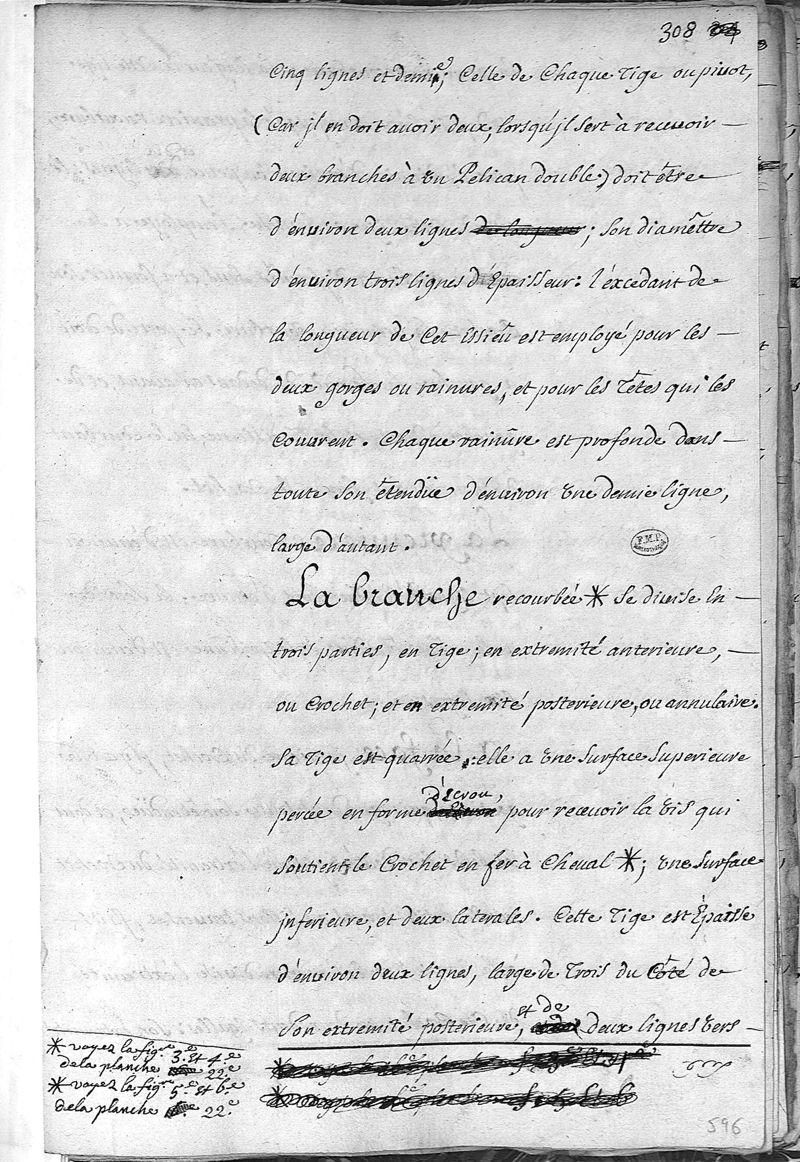 308
Cinq lignes et demie; Celle de Chaque Tige ou pivot,
(Car jl en doit auoir deux, lorsqu'jl sert à receuoir —
deux branches à un Pelican double) doit être
d'énuiron deux lignes de longueur; Son diamêttre
d'énuiron trois lignes d'Épaisseur: l'éxcedant de
la longueur de Cet Essieu est employé pour les —
deux gorges ou rainures, et pour les Têtes qui les
Couurent. Chaque rainure est profonde dans —
toute Son étendüe d'énuiron une demie ligne,
large d'autant.
La branche recourbée * Se diuise En —
trois parties, en Tige; en extremité anterieure, —
ou Crochet; et en extremité posterieure, ou annulaire.
Sa Tige est quarrée: elle a une Surface Superieure
d'Ecrou,
percée en forme pour receuoir la vis qui
Soutient le Crochet en fer à Cheval *; une Surface
jnferieure, et deux laterales. Cette Tige est Épaisse
d'énuiron deux lignes, large de Trois du Côté de
et de
Son extremité posterieure, deux lignes vers —
* voyez la fig.e 3.e et 4.e
de la planche 22.e
* voyez la fig.e 5.e et 6.e
de la planche 22.e
596